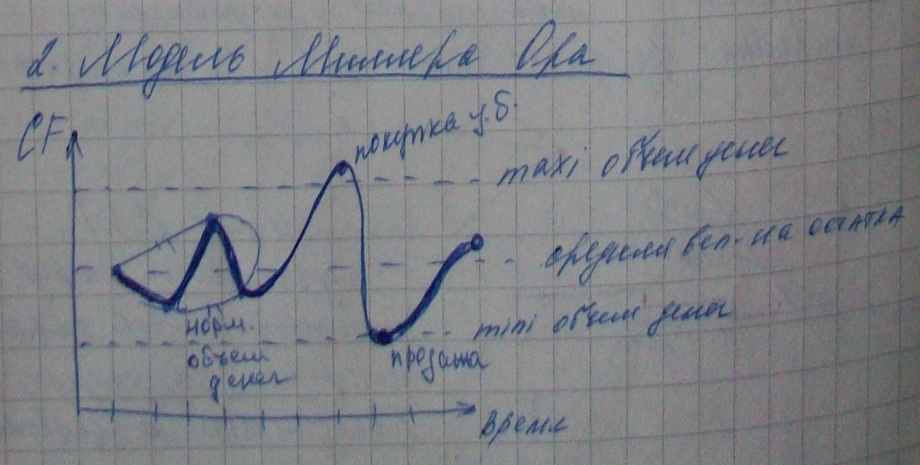 2. Модель Миллера Ора
CF
покупка ц.б.
maxi объем денег
средняя вел-на остатка
mini объем денег
норм.
объем
денег
продажа
время